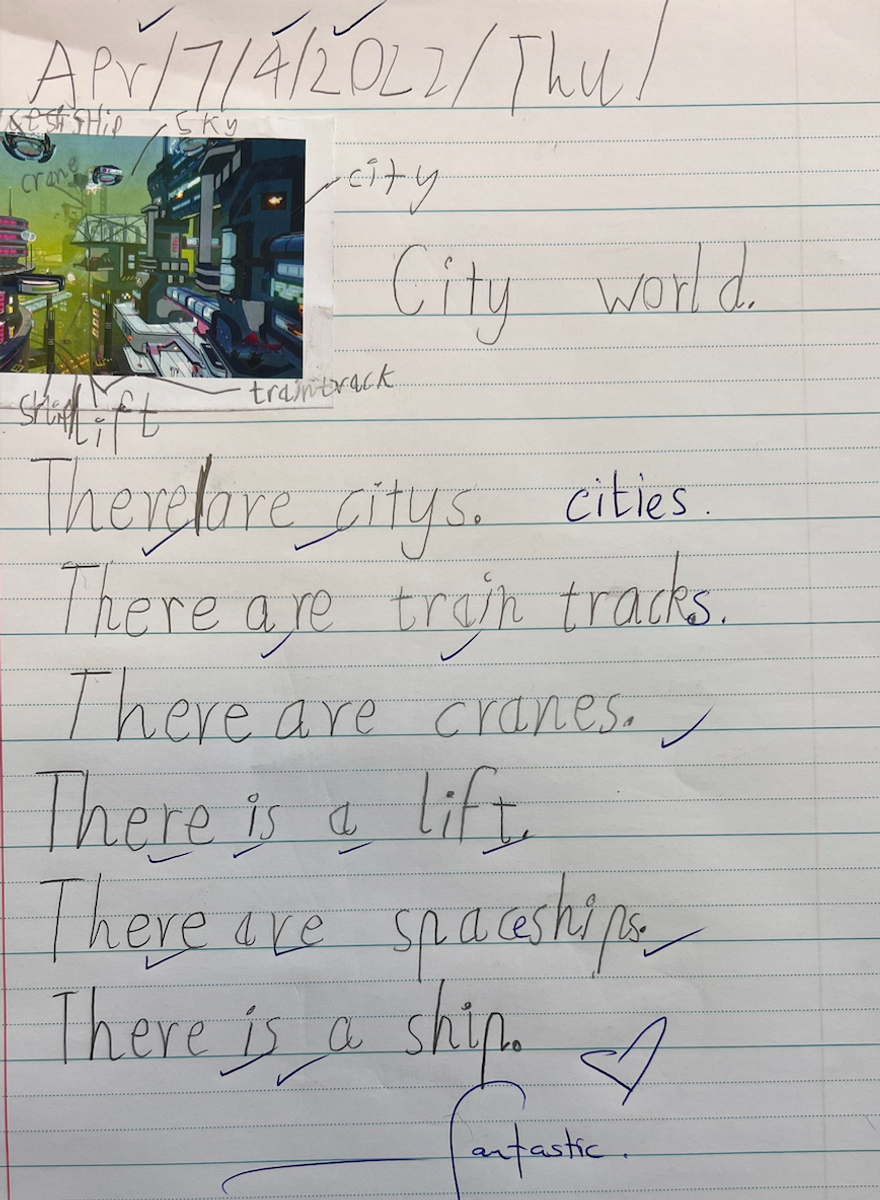 Apr/7/4/2022/Thu/
ship sky
crane
city
City world.
train track
ship lift
There are citys. cities.
There are train tracks.
There are cranes.
There is a lift.
There are spaceships.
There is a ship.
fantastic.